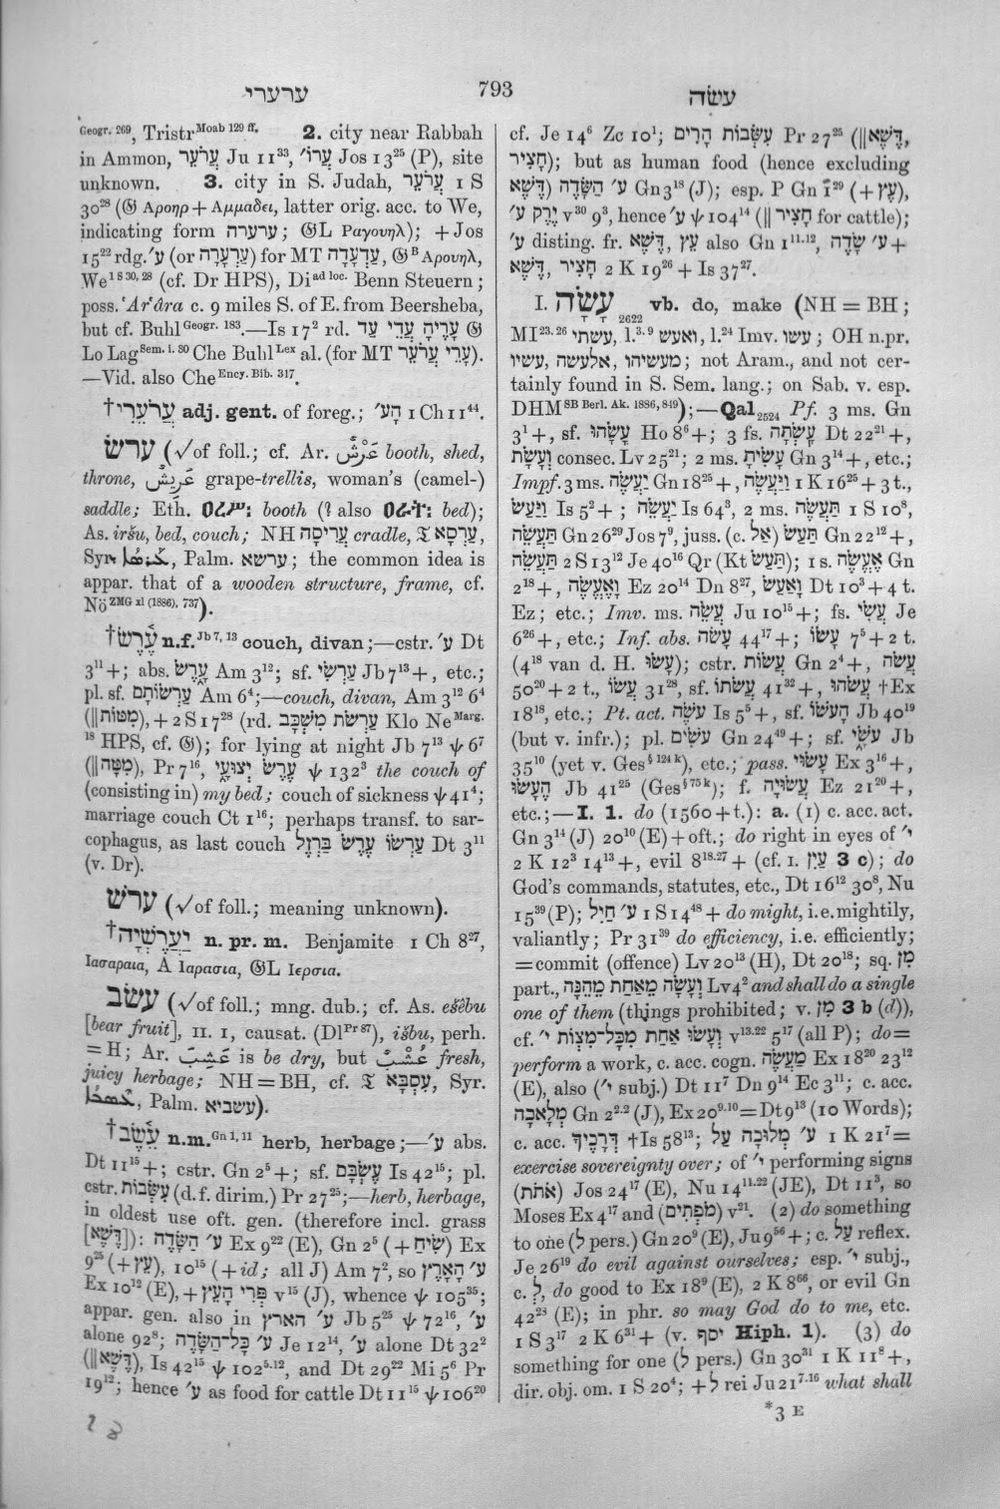 ערערי
793
עשׂה
Geogr. 269, Tristr Moab 129 ff. 2. city near Rabbah
in Ammon, עֲרֹעֵר Ju 11 33, עֲרוֹ׳ Jos 13 25 (P), site
unknown. 3. city in S. Judah, עֲרֹעֵר 1 S
30 28 (𝔊 Αροηρ + Αμμαδει, latter orig. acc. to We,
indicating form ערערה; 𝔊L Ραγουηλ); + Jos
15 22 rdg. ע׳ (or עַרְעָרָה) for MT עַדְעָדָה, 𝔊B Αρουηλ,
We 1 S 30, 28 (cf. Dr HPS), Di ad loc. Benn Steuern;
poss. ‘Ar‘âra c. 9 miles S. of E. from Beersheba,
but cf. Buhl Geogr. 183.—Is 17 2 rd. עָרֶיהָ עֲדֵי עַד 𝔊
Lo Lag Sem. i. 30 Che Buhl Lex al. (for MT עָרֵי עֲרֹעֵר).
—Vid. also Che Ency. Bib. 317.
†עֲרֹעֵרִי adj. gent. of foreg.; הָע׳ 1 Ch 11 44.
ערשׂ (√ of foll.; cf. Ar. عَرْشٌ booth, shed,
throne, عَرِيشٌ grape-trellis, woman's (camel-)
saddle; Eth. booth (? also bed);
As. iršu, bed, couch; NH עֲרִיסָה cradle, 𝔗 עַרְסָא,
Syr. Palm. ערשא; the common idea is
appar. that of a wooden structure, frame, cf.
Nö ZMG xl (1886), 737).
†עֶרֶשׂ n.f. Jb 7, 13 couch, divan;—cstr. ע׳ Dt
3 11 +; abs. עָרֶשׂ Am 3 12; sf. עַרְשִׂי Jb 7 13 +, etc.;
pl. sf. עַרְשׂוֹתָם Am 6 4;—couch, divan, Am 3 12 6 4
(‖מִטּוֹת), + 2 S 17 28 (rd. עַרְשֹׂת מִשְׁכָּב Klo Ne Marg.
18 HPS, cf. 𝔊); for lying at night Jb 7 13 ψ 6 7
(‖מִטָּה), Pr 7 16, עֶרֶשׂ יְצוּעָי ψ 132 3 the couch of
(consisting in) my bed; couch of sickness ψ 41 4;
marriage couch Ct 1 16; perhaps transf. to sar-
cophagus, as last couch עַרְשׂוֹ עֶרֶשׂ בַּרְזֶל Dt 3 11
(v. Dr).
ערשׁ (√ of foll.; meaning unknown).
†יַעֲרֶשְׁיָה n. pr. m. Benjamite 1 Ch 8 27,
Ιασαραια, A Ιαρασια, 𝔊L Ιερσια.
עשׂב (√ of foll.; mng. dub.; cf. As. ešêbu
[bear fruit], II. 1, causat. (Dl Pr 87), išbu, perh.
=H; Ar. عَشِبَ is be dry, but عُشْبٌ fresh,
juicy herbage; NH = BH, cf. 𝔗 עִסְבָּא, Syr.
Palm. עשביא).
†עֵשֶׂב n.m. Gn 1, 11 herb, herbage;—ע׳ abs.
Dt 11 15 +; cstr. Gn 2 5 +; sf. עֶשְׂבָּם Is 42 15; pl.
cstr. עִשְּׂבוֹת (d. f. dirim.) Pr 27 25;—herb, herbage,
in oldest use oft. gen. (therefore incl. grass
[דֶּשֶׁא]): ע׳ הַשָּׂדֶה Ex 9 22 (E), Gn 2 5 (+ שִׂיחַ) Ex
9 25 (+ עֵץ), 10 15 (+ id; all J) Am 7 2, so ע׳ הָאָרֶץ
Ex 10 12 (E), + פְּרִי הָעֵץ v 15 (J), whence ψ 105 35;
appar. gen. also in ע׳ הארץ Jb 5 25 ψ 72 16, ע׳
alone 92 8; ע׳ כָּל־הַשָּׂדֶה Je 12 14, ע׳ alone Dt 32 2
(‖דֶּשֶׁא), Is 42 15 ψ 102 5.12, and Dt 29 22 Mi 5 6 Pr
19 12; hence ע׳ as food for cattle Dt 11 15 ψ 106 20
cf. Je 14 6 Zc 10 1; עִשְּׂבוֹת הָרִים Pr 27 25 (‖דֶּשֶׁא,
חָצִיר); but as human food (hence excluding
דֶּשֶׁא) ע׳ הַשָּׂדֶה Gn 3 18 (J); esp. P Gn 1 29 (+ עֵץ),
יֶרֶק ע׳ v 30 9 3, hence ע׳ ψ 104 14 (‖ חָצִיר for cattle);
ע׳ disting. fr. עֵץ, דֶּשֶׁא also Gn 1 11.12, ע׳ שָׂדֶה +
חָצִיר, דֶּשֶׁא 2 K 19 26 + Is 37 27.
I. עָשָׂה 2622 vb. do, make (NH = BH;
MI 23.26 עשתי, l. 3.9 ואעש, l. 24 Imv. עשו; OH n.pr.
עשיו, אלעשה, מעשיהו; not Aram., and not cer-
tainly found in S. Sem. lang.; on Sab. v. esp.
DHM SB Berl. Ak. 1886, 849);—Qal 2524 Pf. 3 ms. Gn
3 1 +, sf. עָשָׂהוּ Ho 8 6 +; 3 fs. עָשְׂתָה Dt 22 21 +,
וְעָשָׂת consec. Lv 25 21; 2 ms. עָשִׂיתָ Gn 3 14 +, etc.;
Impf. 3 ms. יַעֲשֶׂה Gn 18 25 +, וַיַּעֲשֶׂה 1 K 16 25 + 3 t.,
וַיַּעַשׂ Is 5 2 +; יַעֲשֵׂה Is 64 3, 2 ms. תַּעֲשֶׂה 1 S 10 8,
תַּעֲשֵׂה Gn 26 29 Jos 7 9, juss. (c. אַל) תַּעַשׂ Gn 22 12 +,
תַּעֲשֵׂה 2 S 13 12 Je 40 16 Qr (Kt תַּעַשׂ); 1 s. אֶעֱשֶׂה Gn
2 18 +, וָאֶעֱשֶׂה Ez 20 14 Dn 8 27, וָאַעַשׂ Dt 10 3 + 4 t.
Ez; etc.; Imv. ms. עֲשֵׂה Ju 10 15 +; fs. עֲשִׂי Je
6 26 +, etc.; Inf. abs. עָשֹׂה 44 17 +; עָשׂוֹ 7 5 + 2 t.
(4 18 van d. H. עָשׂוֹ); cstr. עֲשׂוֹת Gn 2 4 +, עֲשֹׂה
50 20 + 2 t., עֲשׂוֹ 31 28, sf. עֲשֹׂתוֹ 41 32 +, עֲשֹׂהוּ †Ex
18 18, etc.; Pt. act. עֹשֶׂה Is 5 5 +, sf. הָעֹשׂוֹ Jb 40 19
(but v. infr.); pl. עֹשִׂים Gn 24 49 +; sf. עֹשָׂי Jb
35 10 (yet v. Ges § 124 k), etc.; pass. עָשׂוּי Ex 3 16 +,
הֶעָשׂוּ Jb 41 25 (Ges § 75 k); f. עֲשׂוּיָה Ez 21 20 +,
etc.;—I. 1. do (1560 + t.): a. (1) c. acc. act.
Gn 3 14 (J) 20 10 (E) + oft.; do right in eyes of י׳
2 K 12 3 14 13 +, evil 8 18.27 + (cf. I. עַיִן 3 c); do
God's commands, statutes, etc., Dt 16 12 30 8, Nu
15 39 (P); ע׳ חַיִל 1 S 14 48 + do might, i.e. mightily,
valiantly; Pr 31 39 do efficiency, i.e. efficiently;
=commit (offence) Lv 20 13 (H), Dt 20 18; sq. מִן
part., וְעָשָׂה מֵאַחַת מֵהֵנָּה Lv 4 2 and shall do a single
one of them (things prohibited; v. מִן 3 b (d)),
cf. וְעָשׂוּ אַחַת מִכָּל־מִצְוֹת י׳ v 13.22 5 17 (all P); do=
perform a work, c. acc. cogn. מַעֲשֶׂה Ex 18 20 23 12
(E), also (י׳ subj.) Dt 11 7 Dn 9 14 Ec 3 11; c. acc.
מְלָאכָה Gn 2 2.2 (J), Ex 20 9.10 = Dt 9 13 (10 Words);
c. acc. דְּרָכֶיךָ †Is 58 13; ע׳ מְלוּכָה עַל 1 K 21 7 =
exercise sovereignty over; of י׳ performing signs
(אֹתֹת) Jos 24 17 (E), Nu 14 11.22 (JE), Dt 11 3, so
Moses Ex 4 17 and (מֹפְתִים) v 21. (2) do something
to one (לְ pers.) Gn 20 9 (E), Ju 9 56 +; c. עַל reflex.
Je 26 19 do evil against ourselves; esp. י׳ subj.,
c. לְ, do good to Ex 18 9 (E), 2 K 8 66, or evil Gn
42 28 (E); in phr. so may God do to me, etc.
1 S 3 17 2 K 6 31 + (v. יסף Hiph. 1). (3) do
something for one (לְ pers.) Gn 30 31 1 K 11 8 +,
dir. obj. om. 1 S 20 4; + לְ rei Ju 21 7.16 what shall
*3 E